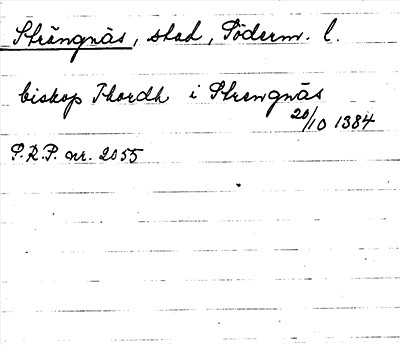 Strängnäs, stad, Söderm. l.
biskop Thordh i Strengnäs
20/10 1384
P.R.P. nr. 2055